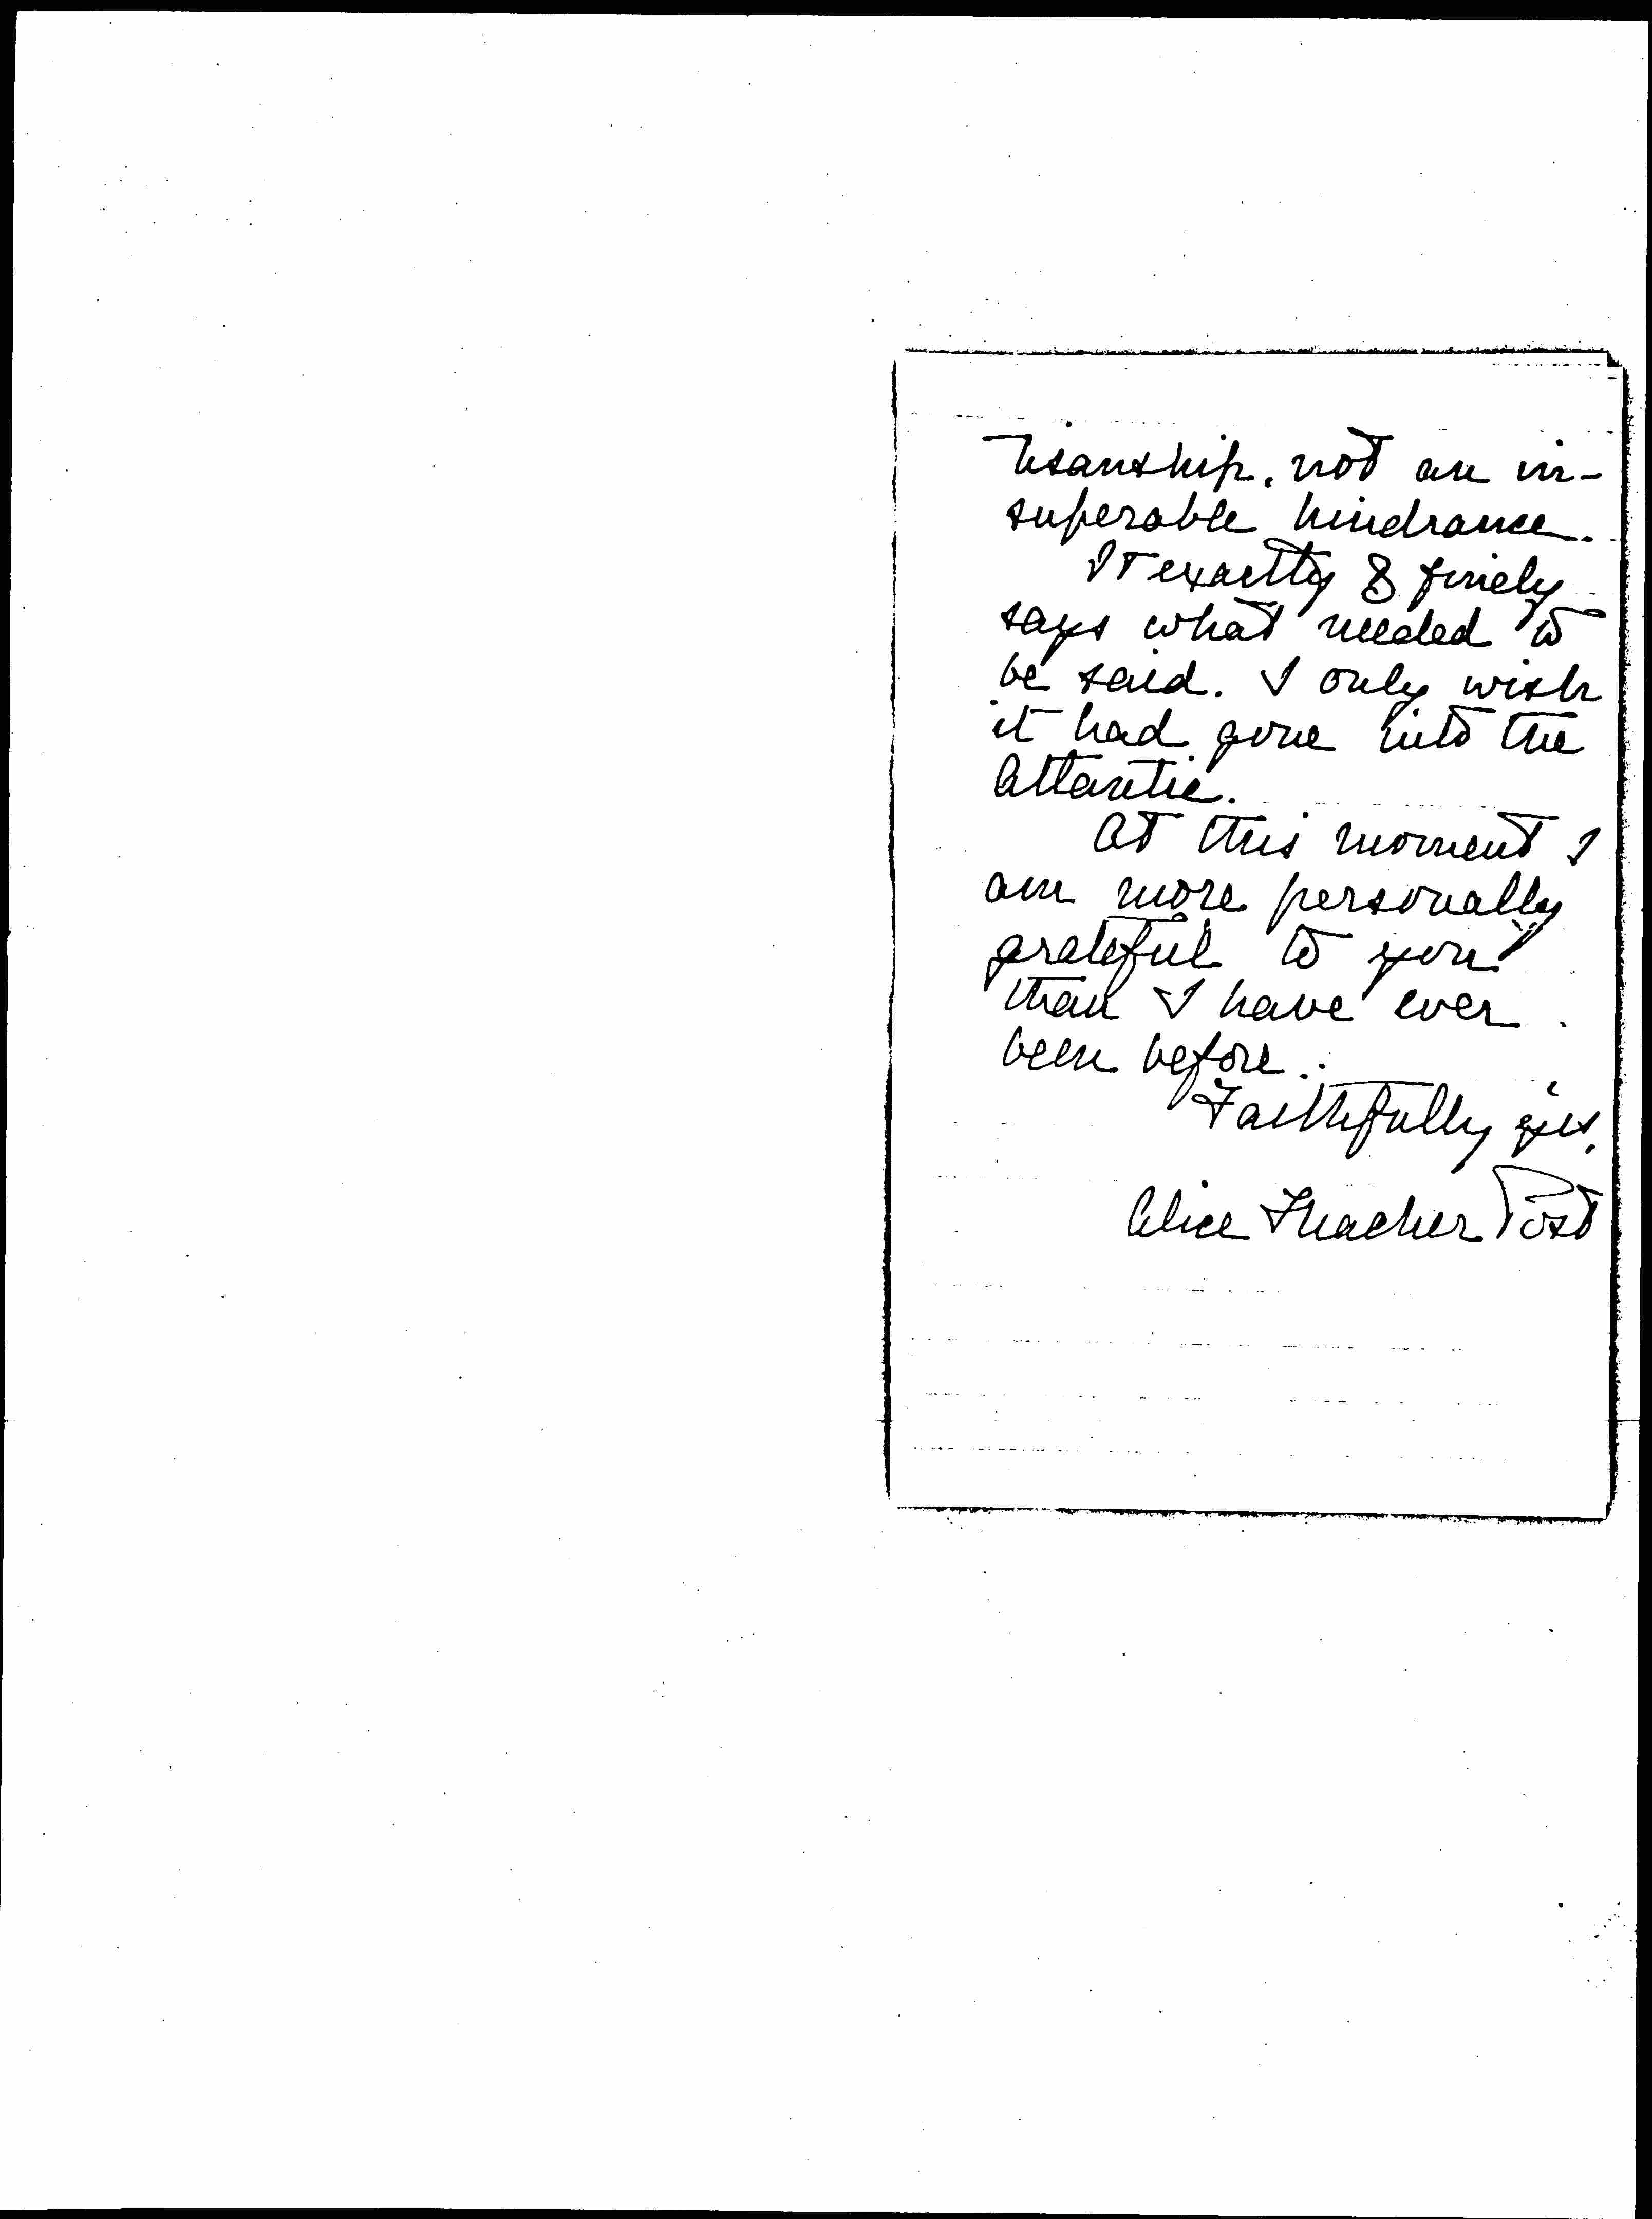 tisanship, not an in-
superable hindrance.
It exactly & finely
says what needed to
be said. I only wish
it had gone into the
Atlantic.
At this moment I
am more personally
grateful to you
than I have ever
been before.
Faithfully yrs.
Alice Thacher Post